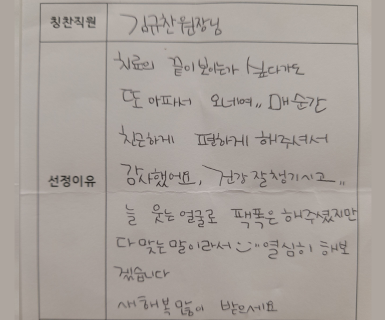 칭찬직원 김규찬 원장님
치료의 끝이 보이는가 싶다가도
또 아파서 오네여,, 매순간
친근하게 편하게 해주셔서
선정이유
감사했어요, 건강 잘 챙기시고,,
늘 웃는 얼굴로 팩폭은 해주셨지만
다 맞는 말이라서 :) 열심히 해보
겠습니다
새해복 많이 받으세요